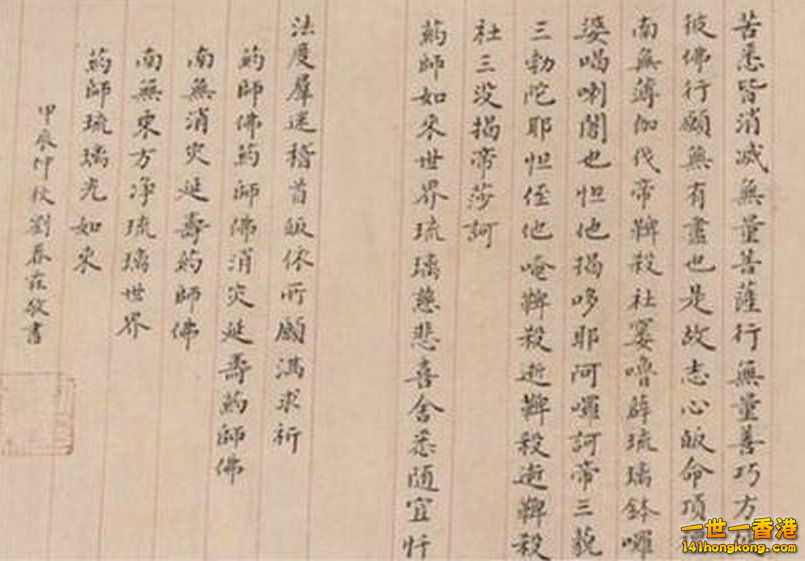 苦悉皆消滅無量菩薩行無量善巧方
彼佛行願無有盡也是故志心皈命頂
南無薄伽伐帝鞞殺社窶嚕薜琉璃鉢囉
婆喝喇闍也怛他揭哆耶阿囉訶帝三藐
三勃陀耶怛侄他唵鞞殺逝鞞殺逝鞞殺
社三没揭帝莎訶
葯師如来世界琉璃慈悲喜舍悉随宜忏
法度羣迷稽首皈依所願满求祈
葯師佛葯師佛消灾延壽葯師佛
南無消灾延壽葯師佛
南無東方净琉璃世界
葯師琉璃光如来
甲辰仲秋劉春在敬書
一世一香港
141hongkong.com